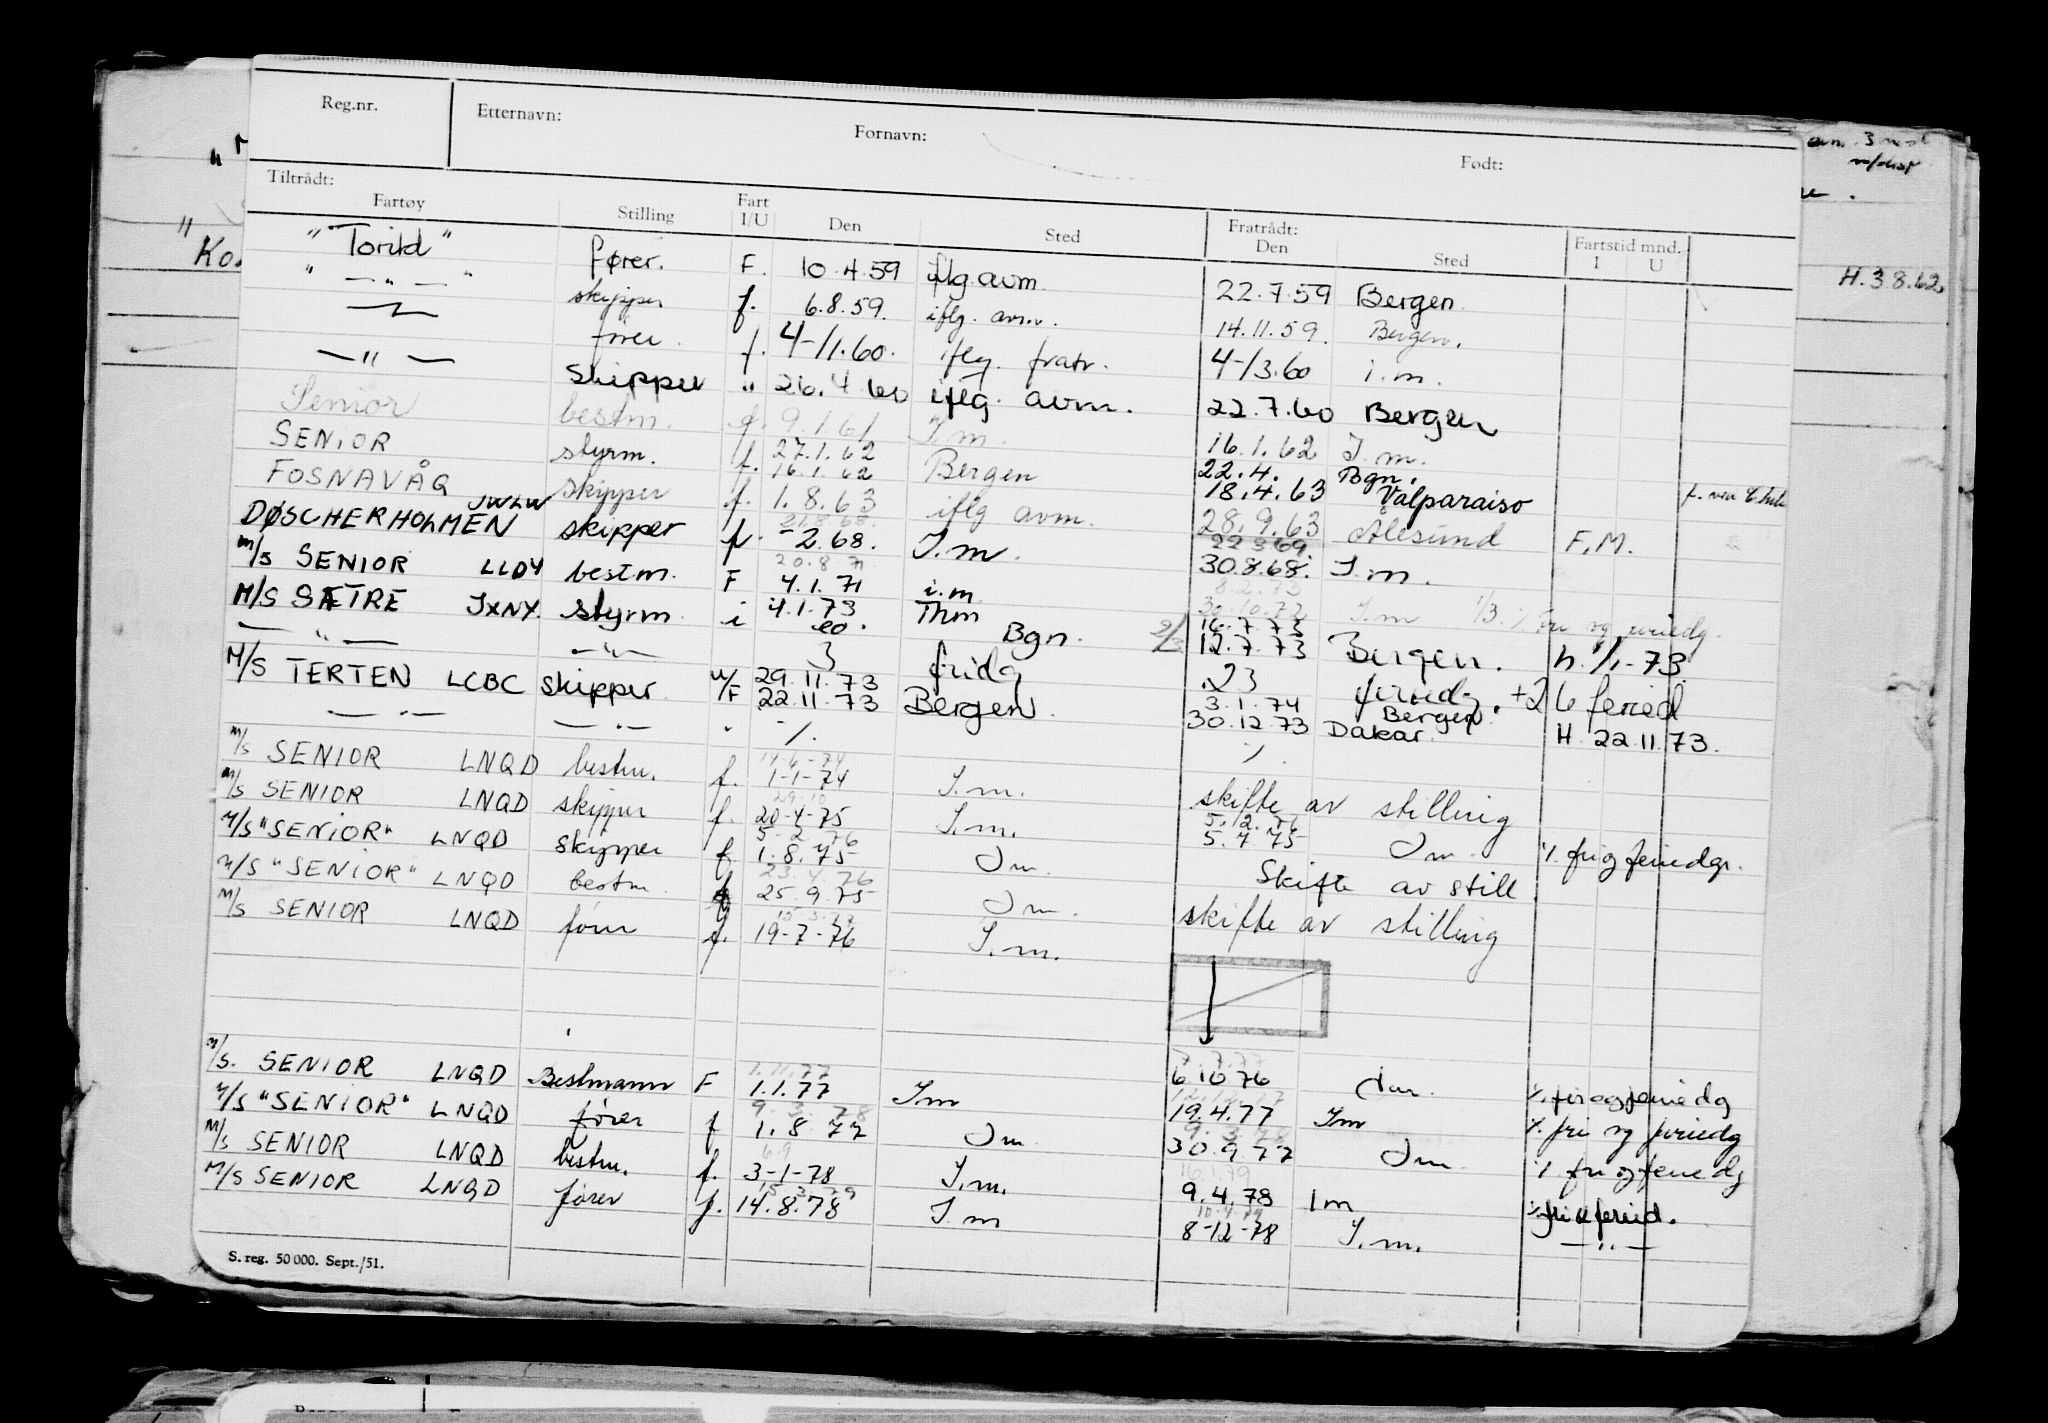 Reg.nr. Etternavn: Fornavn: Født:
Tiltrådt: Fratrådt: Fartstid mnd.
Fartøy Stilling Fart I/U Den Sted Den Sted I U
"Torild" fører. F. 10.4.59 iflg avm. 22.7.59 Bergen
" — " — " skipper f. 6.8.59. iflg. avm. 14.11.59. Bergen.
fører f. 4-/1.60. iflg. fratr. 4-/3.60 i.m.
— " — Skipper " 26.4 60 iflg. avm. 22.7.60 Bergen
Senior bestm. f. 9.1.61 I.m. 16.1.62 I.m.
SENIOR styrm. f. 27.1.62 16.1.62 Bergen 22.4. Bgn.
FOSNAVÅG JWLW skipper f. 1.8.63 iflg avm. 18.4.63 Valparaiso
28.9.63 Ålesund F.M.
DØSCHERHOLMEN skipper f. -2.68. I.m. 22 3 69. 30.8.68. I.m.
M/S SENIOR LLDY bestm. F 20.8 71 4.1.71 i.m
30.10.72 I.m 1/3 % fri og feriedg.
M/S SÆTRE JXNY. styrm i 4.1.73 Thm 16.7.73
— " — — " — 20. Bgn. 12.7.73 Bergen. h. 1/1-73.
3 fridg .23 feriedg. +26 feried
M/S TERTEN LCBC skipper U/F 29.11.73 22.11.73 Bergen 3.1.74 Bergen. 30.12.73 Dakar. H. 22.11.73.
— " — — " — " /. /.
M/S SENIOR LNQD bestm. f. 1-1-74 I.m. skifte av stilling
M/S SENIOR LNQD skipper f. 29.10 20-4-75 I.m. 5.12.76 5.7 75 Im % fri og feriedgr.
M/S "SENIOR" LNQD skipper f 5-2 76 1.8.75 Im. Skifte av still
M/S "SENIOR" LNQD bestm. f 23.4.76 25.9.75 Im. skifte av stilling
M/S SENIOR LNQD fører f. 15.3.77 19-7-76 I.m.
M/S. SENIOR LNQD Bestmann F 1.11.77 1.1.77 Im 7.7.77 6 10 76 Im. % fri og feriedg
M/S "SENIOR" LNQD fører f 9.3.78 1.8 77 Im 19.4.77 Im % fri og feriedg
M/S SENIOR LNQD bestm. f. 6.9 3-1-78 I.m. 30.9 77 Im % fri og feriedg
M/S SENIOR LNQD fører f. 15.3.79 14.8.78 I m 16.1.79 9.4.78 Im % fri & feried.
10.4.79 8-12-78 I.m. — " —
S. reg. 50 000. Sept./51.
Ko.
H.3.8.62.